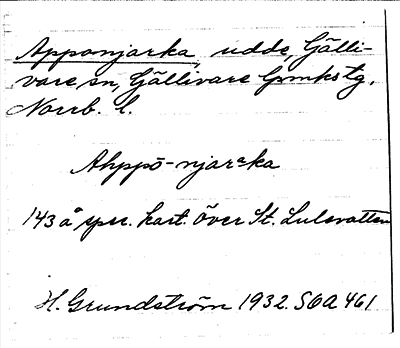 Apponjarka, udde, Gälli-
vare sn, Gällivare lpmkstg,
Norrb. l.
Ahppō-njarᵊka
143 å spec. kart. över St. Lulevatten
H. Grundström 1932. SOA 461